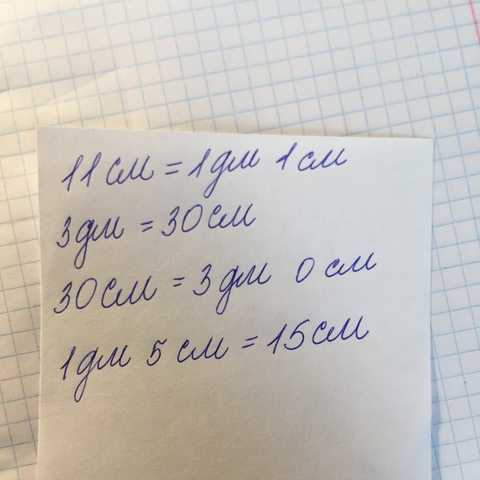 11 см = 1 дм 1 см
3 дм = 30 см
30 см = 3 дм 0 см
1 дм 5 см = 15 см